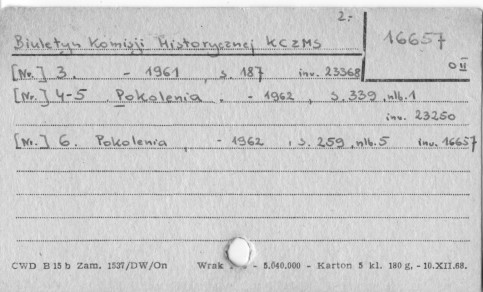 2.-
Biuletyn Komisji Historycznej KCZMS
16657
O II
[Nr.] 3. - 1961, s. 187 inv. 23368
[Nr.] 4-5 Pokolenia. - 1962, s. 339, nlb. 1
inv. 23250
[Nr.] 6. Pokolenia, - 1962, s. 259, nlb. 5 inv. 16657
CWD B 15 b Zam. 1537/DW/On Wrak - 5.040.000 - Karton 5 kl. 180 g. - 10.XII.68.